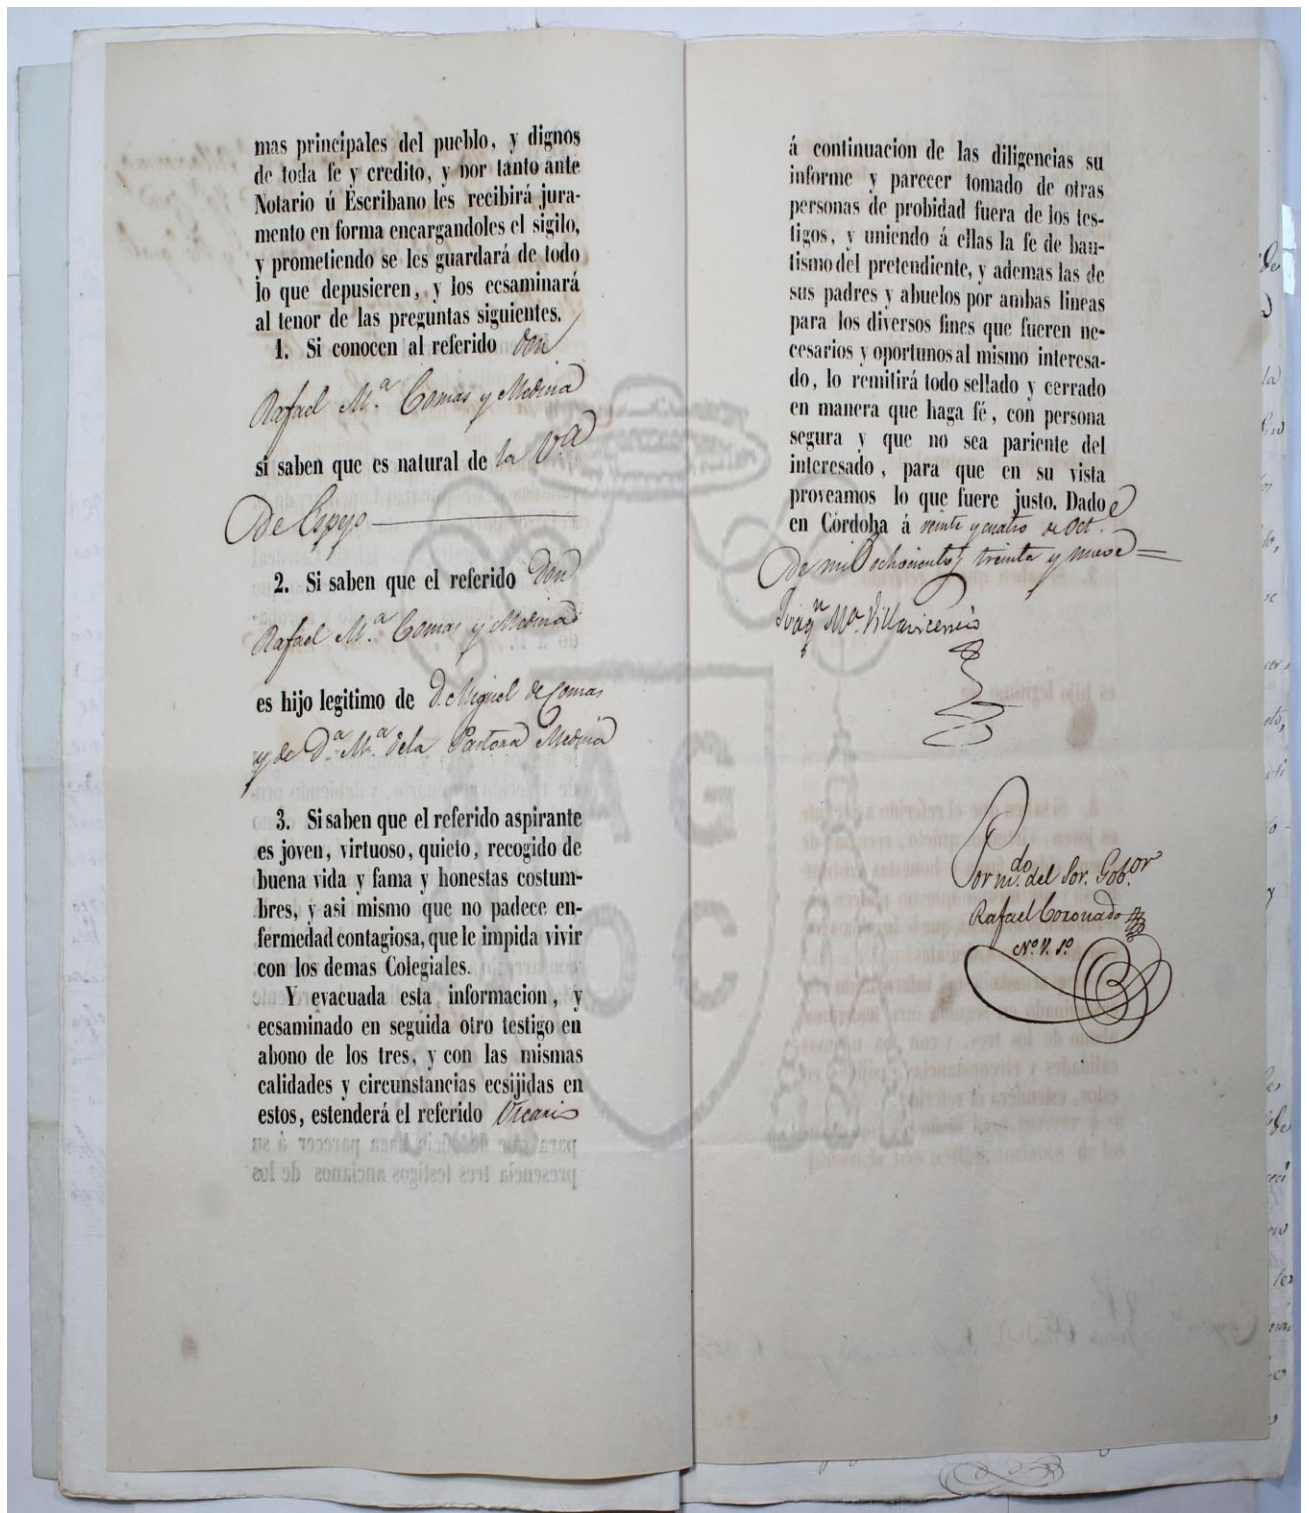 mas principales del pueblo, y dignos
de toda fe y credito, y por tanto ante
Notario ú Escribano les recibirá jura-
mento en forma encargandoles el sigilo,
y prometiendo se les guardará de todo
lo que depusieren, y los ecsaminará
al tenor de las preguntas siguientes.
1. Si conocen al referido don
Rafael M.ª Comas y Medina
si saben que es natural de la V.ª
de Espejo
2. Si saben que el referido don
Rafael M.ª Comas y Medina
es hijo legitimo de D. Miguel de Comas
y de D.ª M.ª dela Pastora Medina
3. Si saben que el referido aspirante
es joven, virtuoso, quieto, recogido de
buena vida y fama y honestas costum-
bres, y asi mismo que no padece en-
fermedad contagiosa, que le impida vivir
con los demas Colegiales.
Y evacuada esta informacion, y
ecsaminado en seguida otro testigo en
abono de los tres, y con las mismas
calidades y circunstancias ecsijidas en
estos, estenderá el referido Vicario
á continuacion de las diligencias su
informe y parecer tomado de otras
personas de probidad fuera de los tes-
tigos, y uniendo á ellas la fe de bau-
tismo del pretendiente, y ademas las de
sus padres y abuelos por ambas lineas
para los diversos fines que fueren ne-
cesarios y oportunos al mismo interesa-
do, lo remitirá todo sellado y cerrado
en manera que haga fé, con persona
segura y que no sea pariente del
interesado, para que en su vista
proveamos lo que fuere justo. Dado
en Córdoba á veinte y cuatro de Oct.e
de mil ochocientos treinta y nueve=
Joaqn Ma. Villavicencio
Por m.do del Sor. Gob.or
Rafael Coronado
Nº. V. Sº.
G A
C O